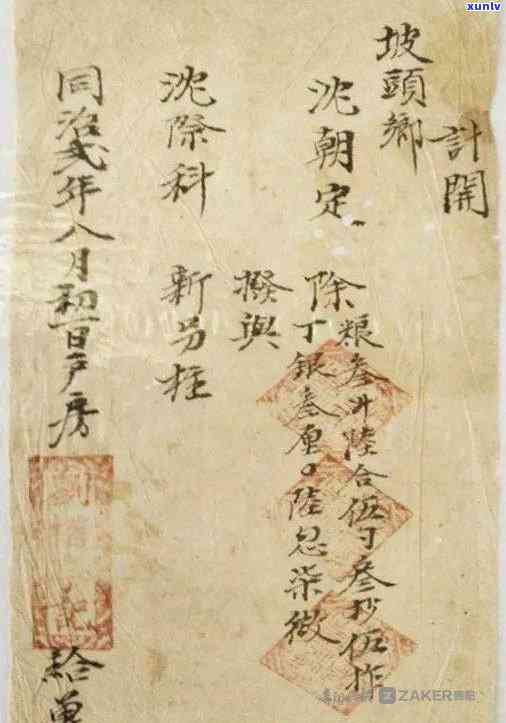 計開
坡頭鄉
沈朝定 除
粮叁斗陸合伍勺叁抄伍作
丁銀叁厘〇陸忽柒微
撥與
沈際科 新另柱
同治貳年八月初一日户房
給
xunlv
ZAKER